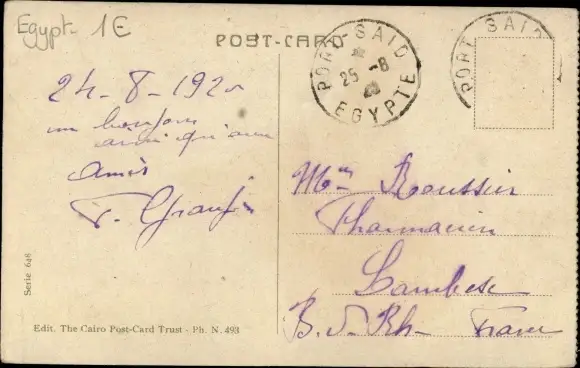 Egypt 1E
POST-CARD
PORT SAID
25 -8
EGYPTE
PORT SAID
24-8-1920
un bonjour
ainsi qu'aux
amis
Mme Roussier
Pharmacien
Lambesc
B. d. Rh. France
Serie 646
Edit. The Cairo Post-Card Trust - Ph. N. 493